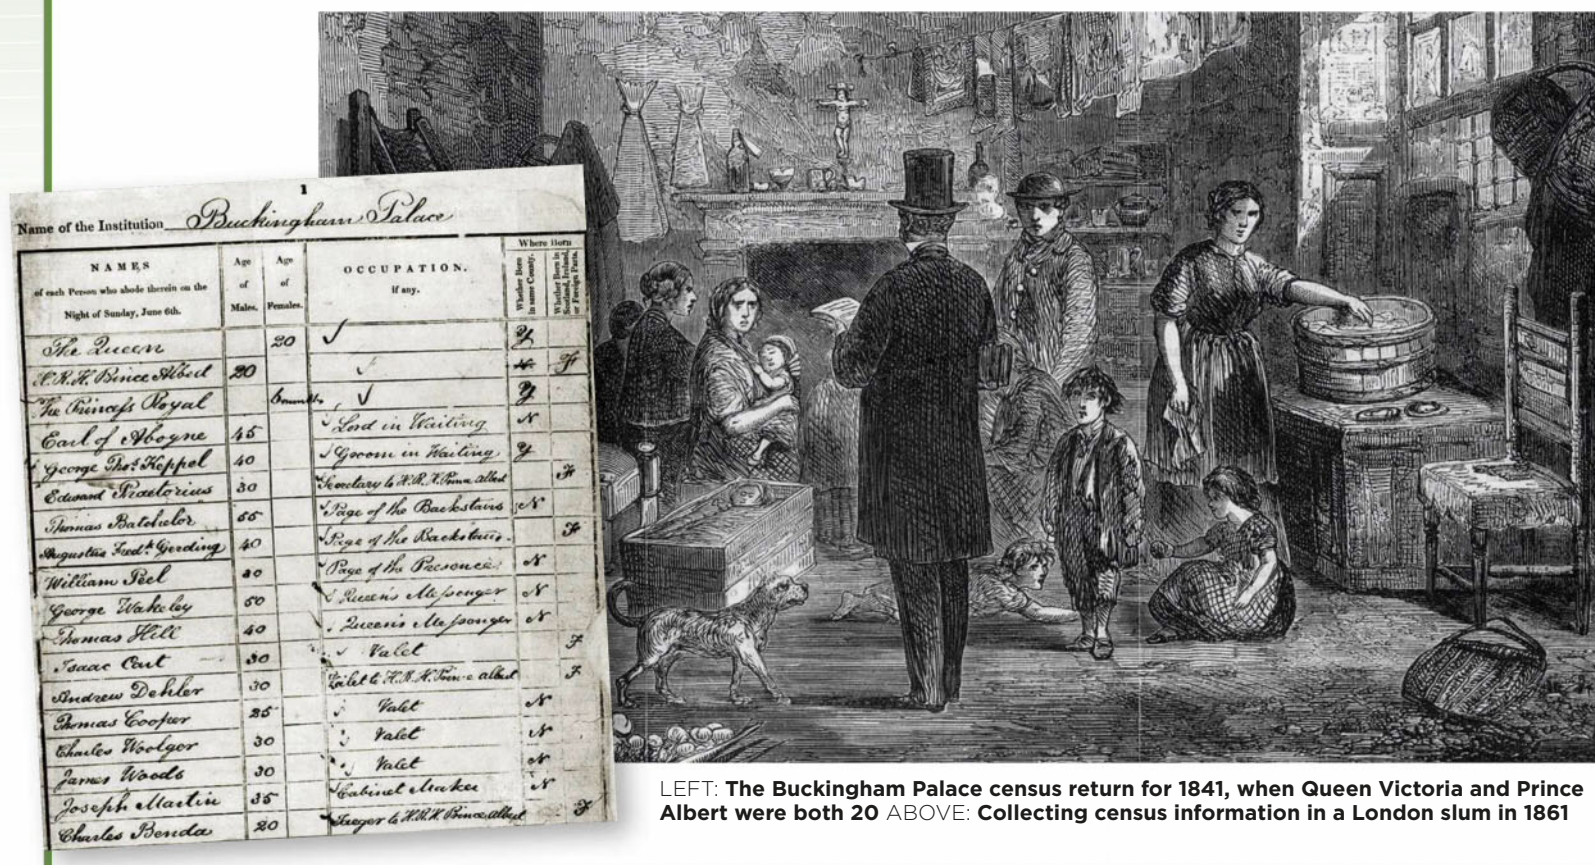 1
Name of the Institution Buckingham Palace
NAMES
of each Person who abode therein on the
Night of Sunday, June 6th.
Age
of
Males.
Age
of
Females.
OCCUPATION.
if any.
Where Born
Whether Born
in same County.
Whether Born in
Scotland, Ireland,
or Foreign Parts.
The Queen 20 Y
H.R.H. Prince Albert 20 F
The Princess Royal 6 months Y
Earl of Aboyne 45 Lord in Waiting N
George Thos. Keppel 40 Groom in Waiting Y
Edward Praetorius 30 Secretary to H.R.H. Prince Albert F
Thomas Batchelor 55 Page of the Backstairs N
Augustus Fredk. Gerding 40 Page of the Backstairs F
William Peel 30 Page of the Presence N
George Wakeley 50 Queen's Messenger N
Thomas Hill 40 Queen's Messenger N
Isaac Cart 30 Valet F
Andrew Dehler 30 Valet to H.R.H. Prince Albert F
Thomas Cooper Valet N
Charles Woolger 30 Valet N
James Woods 30 Valet N
Joseph Martin 35 Cabinet Maker N
Charles Benda 20 Jaeger to H.R.H. Prince Albert F
LEFT: The Buckingham Palace census return for 1841, when Queen Victoria and Prince
Albert were both 20 ABOVE: Collecting census information in a London slum in 1861